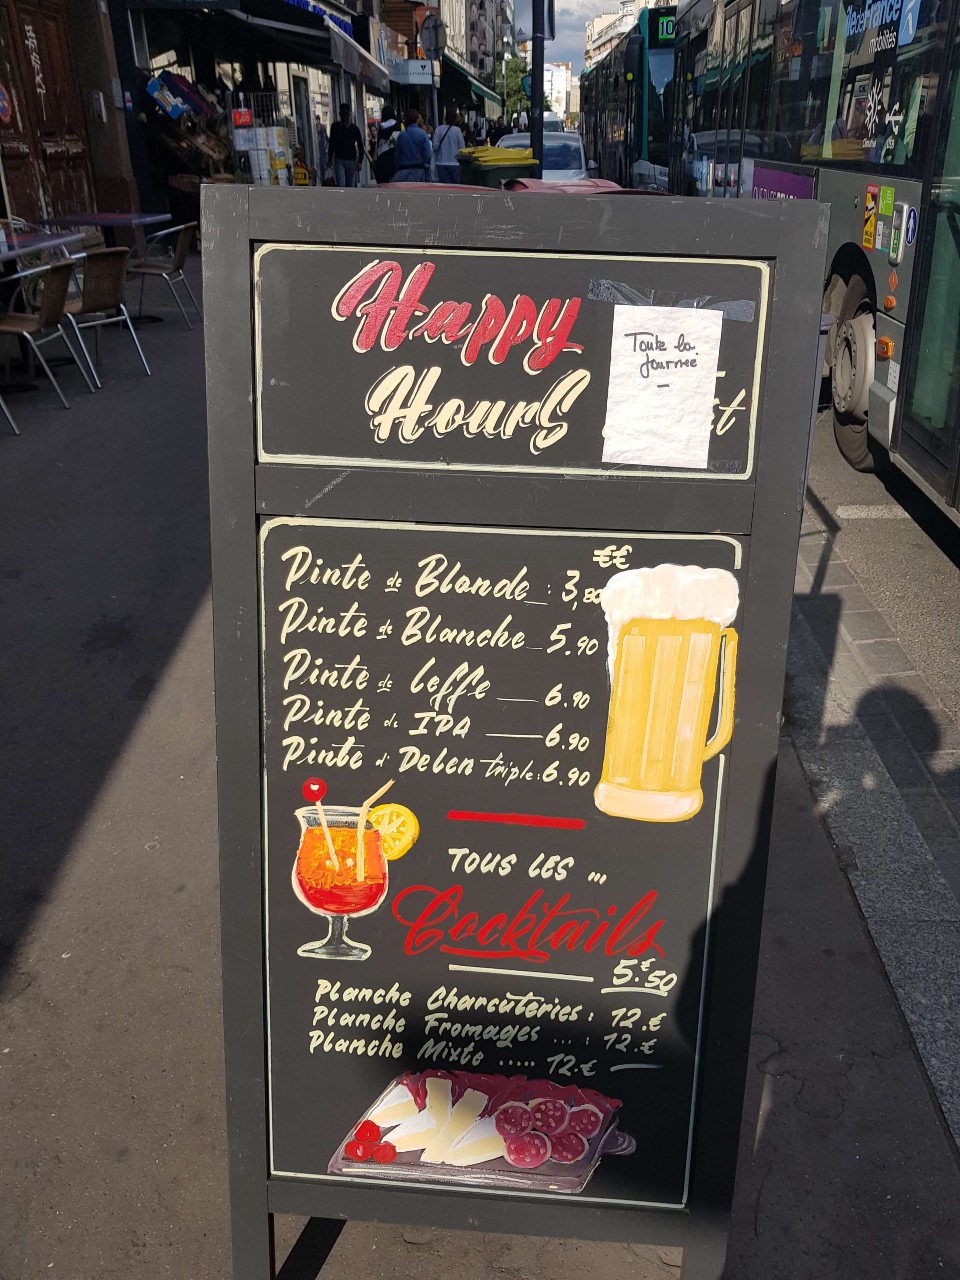 10
îledeFrance
mobilités
Happy
Hours
Toute la
Journée
Pinte de Blonde : 3,80
€€
Pinte de Blanche 5.90
Pinte de Leffe 6.90
Pinte de IPA 6.90
Pinte d' Delen triple: 6.90
TOUS LES ...
Cocktails
5.€50
Planche Charcuteries : 12.€
Planche Fromages ... : 12.€
Planche Mixte ..... 12.€